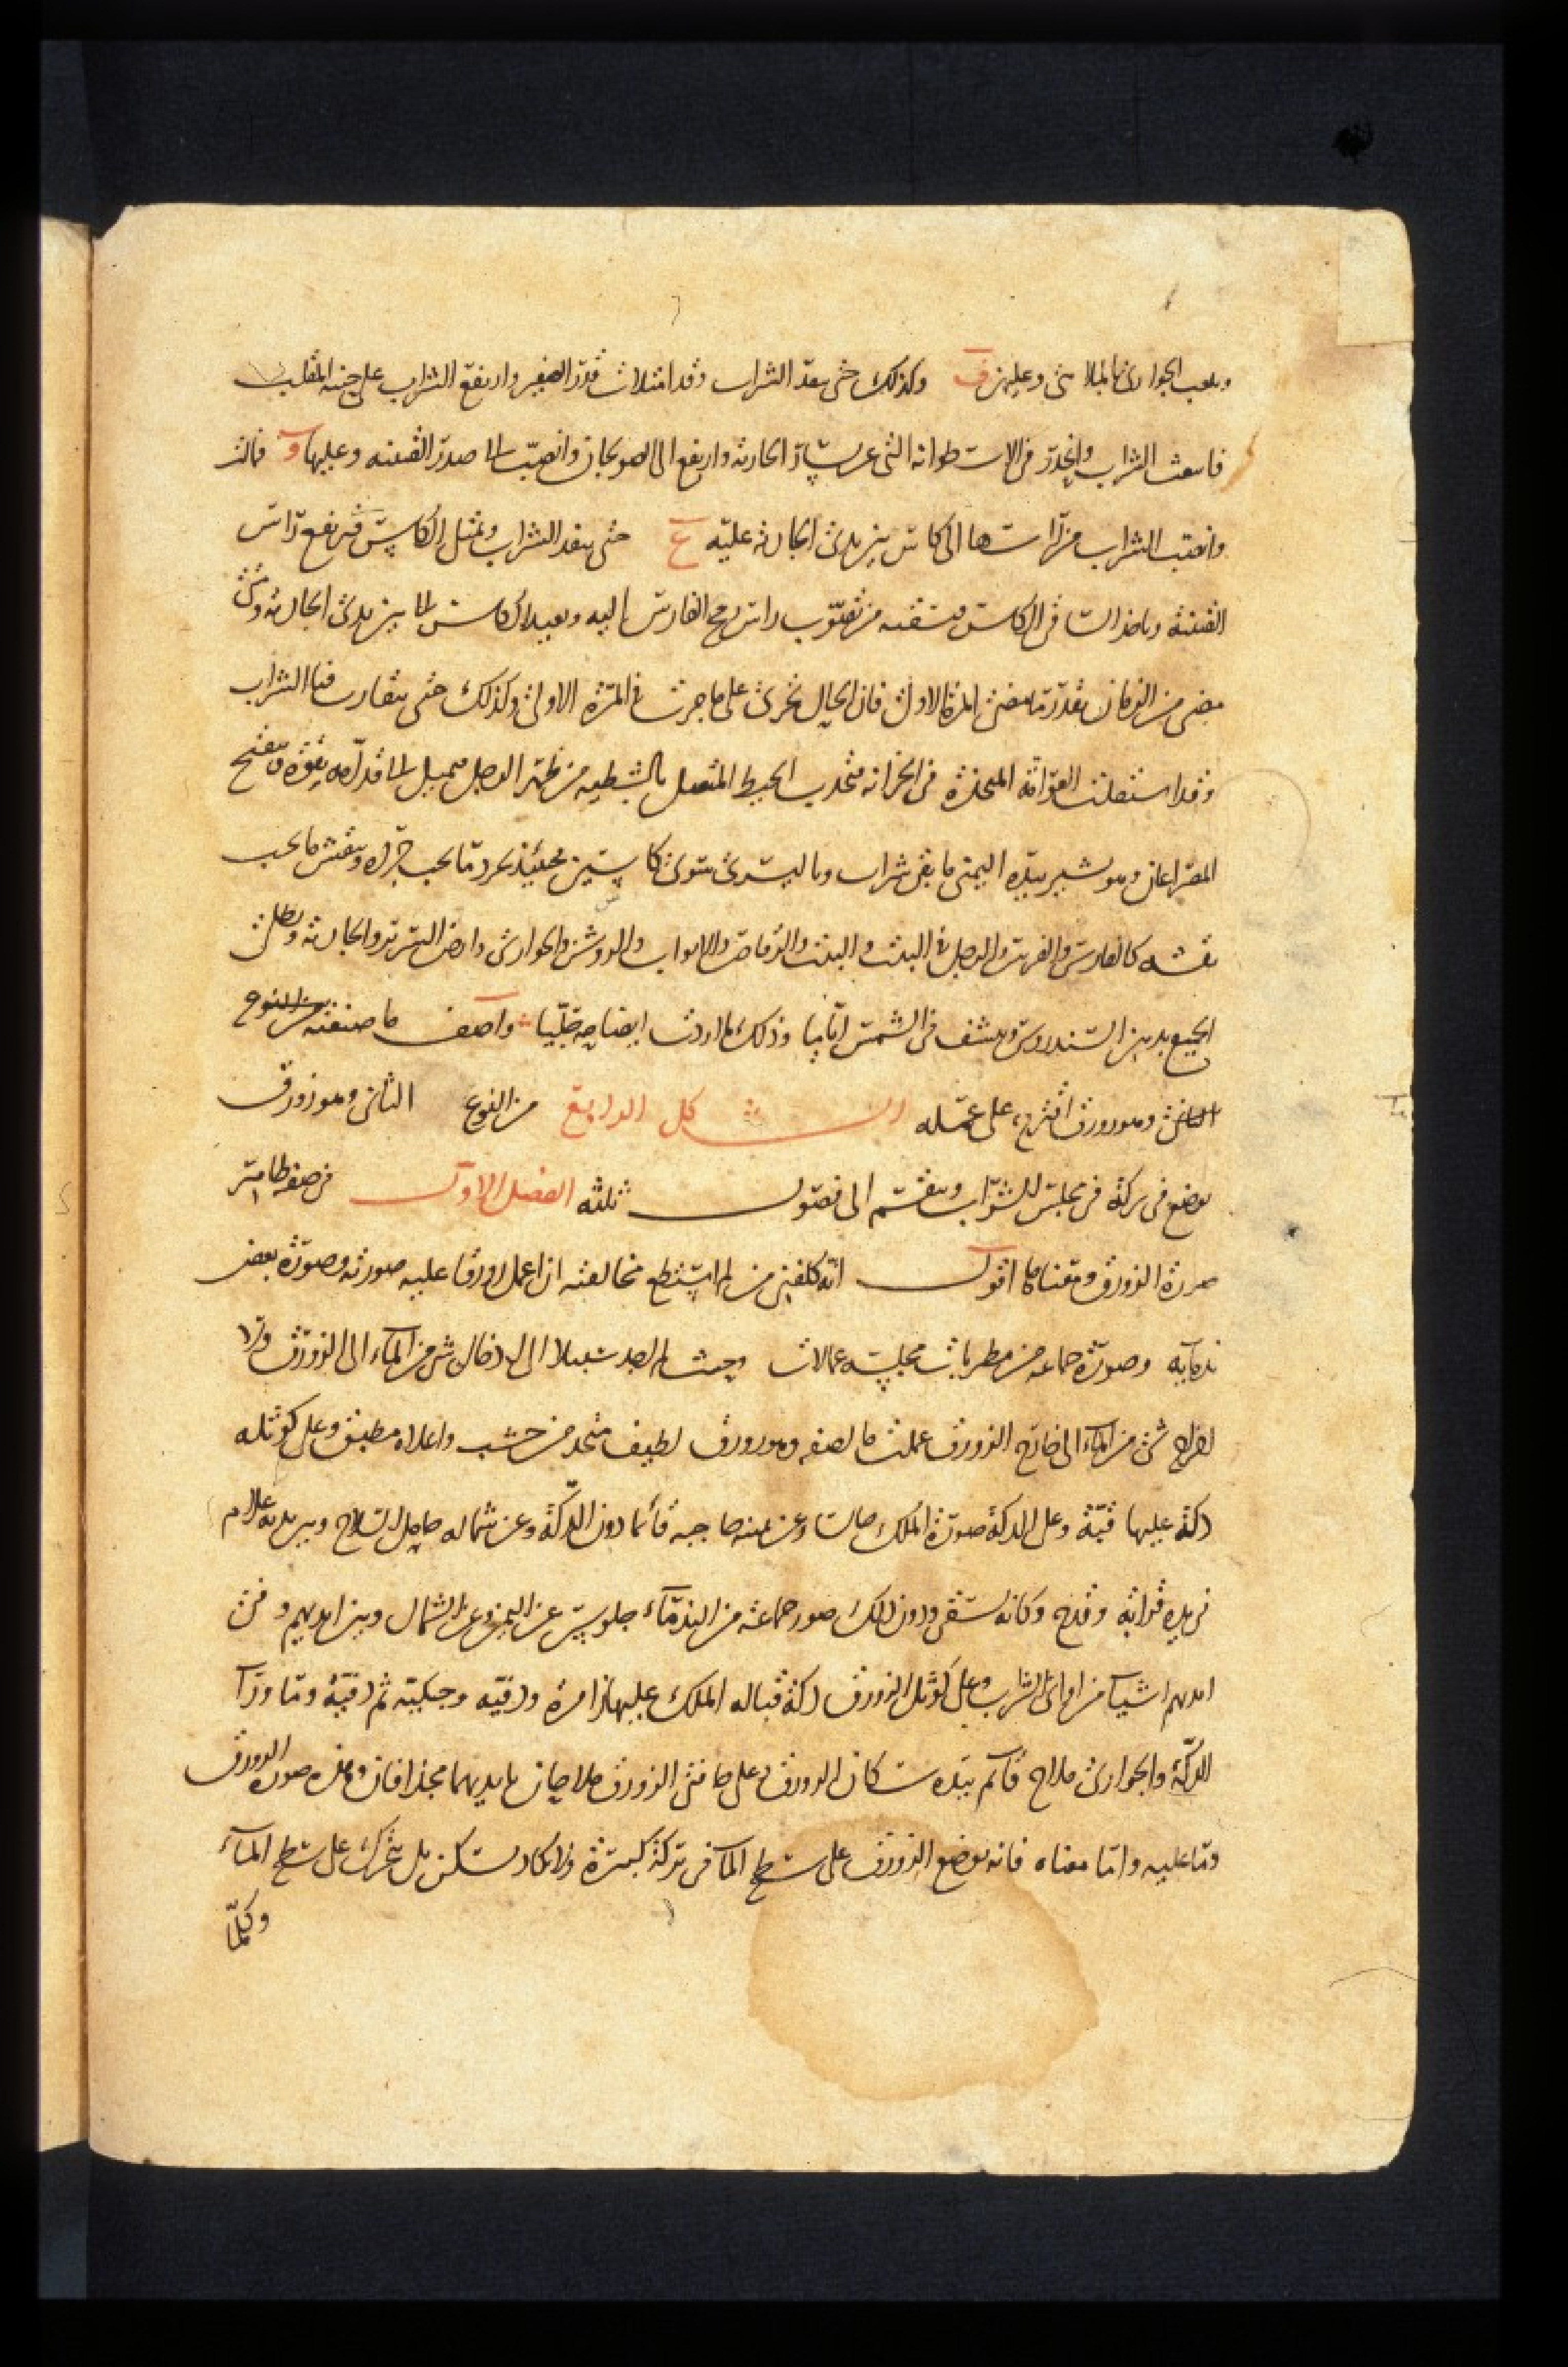 وتلعب الجوارى بالملاهى وعليهن ف وكذلك حتى ينفد الشراب وقد امتلات قدر الصفير وارتفع الشراب على جنبه المقلب
فانبعث الشراب وانحدر فى الاسطوانه التى عن يسار الجارية وارتفع الى الصولجان وانصب الى صدر القنينه وعليها و فمالت
وانصب الشراب من راسها الى كاس بين يدى الجارية عليه ع حتى ينفد الشراب ويمتلى الكاس فيرتفع راس
القنينة وياخذ الساقى الكاس فيسقيه من تصوب راس رمح الفارس اليه ويعيد الكاس الى بين يدى الجارية ومتى
مضى من الزمان بقدر ما مضى المرة الاولى فان الحال تجرى على ما جرت فى المرة الاولى وكذلك حتى يتقارب فنا الشراب
وقد استثقلت العوامة المتخذة فى الخزانه فتجذب الخيط المتصل بالشظيه من ظهر الرجل فيميل الى قدامه بقوة وينفتح
المصراعان وهو يشير بيده اليمنى ما بقى شراب وباليسرى سوى كاسين فحينئذ يجرد ما يجب جرده وينقش ما يجب
نقشه كالفارس والفرس والرجل فى البيت والبيت والرقاص والابواب والروشن والجوارى وارض السرير والجارية ويطلى
الجميع بدهن السندروس وينشف فى الشمس اياما وذلك ما اردت ايضاحه جليا واصف ما صنعته من النوع
الثانى وهو زورق اقترح على عمله الشكل الرابع من النوع الثانى وهو زورق
يوضع فى بركة فى مجلس للشراب وينقسم الى فصول ثلثه الفصل الاول فى صفه ظاهر
صورة الزورق ومعناه كما اقول انه كلفنى من لم استطع مخالفته ان اعمل زورقا عليه صورته وصورة بعض
ندمايه وصورة جماعه من مطربات مجلسه عمالات وحيث لم اجد سبيلا الى ادخال شى من المآء الى الزورق ولا
اخراج شى من المآء الى خارج الزورق عملت ما اصفه وهو زورق لطيف متخذ من خشب واعلاه مطبق وعلى كوثله
دكة عليها قبة وعلى الدكة صورة الملك جالسا وعن يمينه حاجبه قآئما دون الدكة وعن شماله حامل السلاح وبين يديه غلام
فى يده قرابة وقدح وكانه يستقى ودون ذلك صور جماعه من الندمآء جلوس عن اليمين وعن الشمال وبين ايديهم وفى
ايديهم اشيآ من اوانى الشراب وعلى كوثل الزورق دكة قبالة الملك عليها زامرة ودفيه وجنكيه ثم دفية وما ورآ
الدكة والجوارى ملاح قآئم بيده سكان الزورق وعلى حافتى الزورق ملاحان بايديهما مجذافان وهذه صورة الزورق
وما عليه واما معناه فانه يوضع الزورق على سطح المآ فى بركة كبيرة ولا يكاد يسكن بل يتحرك على سطح المآء
وكلما